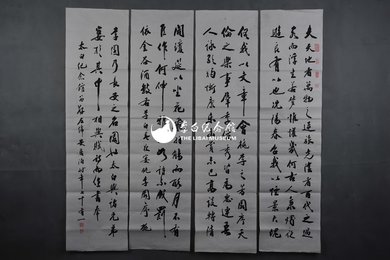 夫天地者萬物之逆旅光陰者百代之過
客而浮生若夢為懽幾何古人秉燭夜
遊良有以也況陽春召我以煙景大塊
假我以文章會桃李之芳園序天
倫之樂事群季俊秀皆為惠連吾
人詠歌獨慚康樂幽賞未已高談轉清
開瓊筵以坐花飛羽觴而醉月不有
佳作何伸雅懷如詩不成罰
依金谷酒數李白春夜宴桃李園序
李園乃長安之名園太白與諸兄弟
宴於其中相與賦詩而作書奉
太白紀念館
李白纪念馆
THE LIBAI MUSEUM